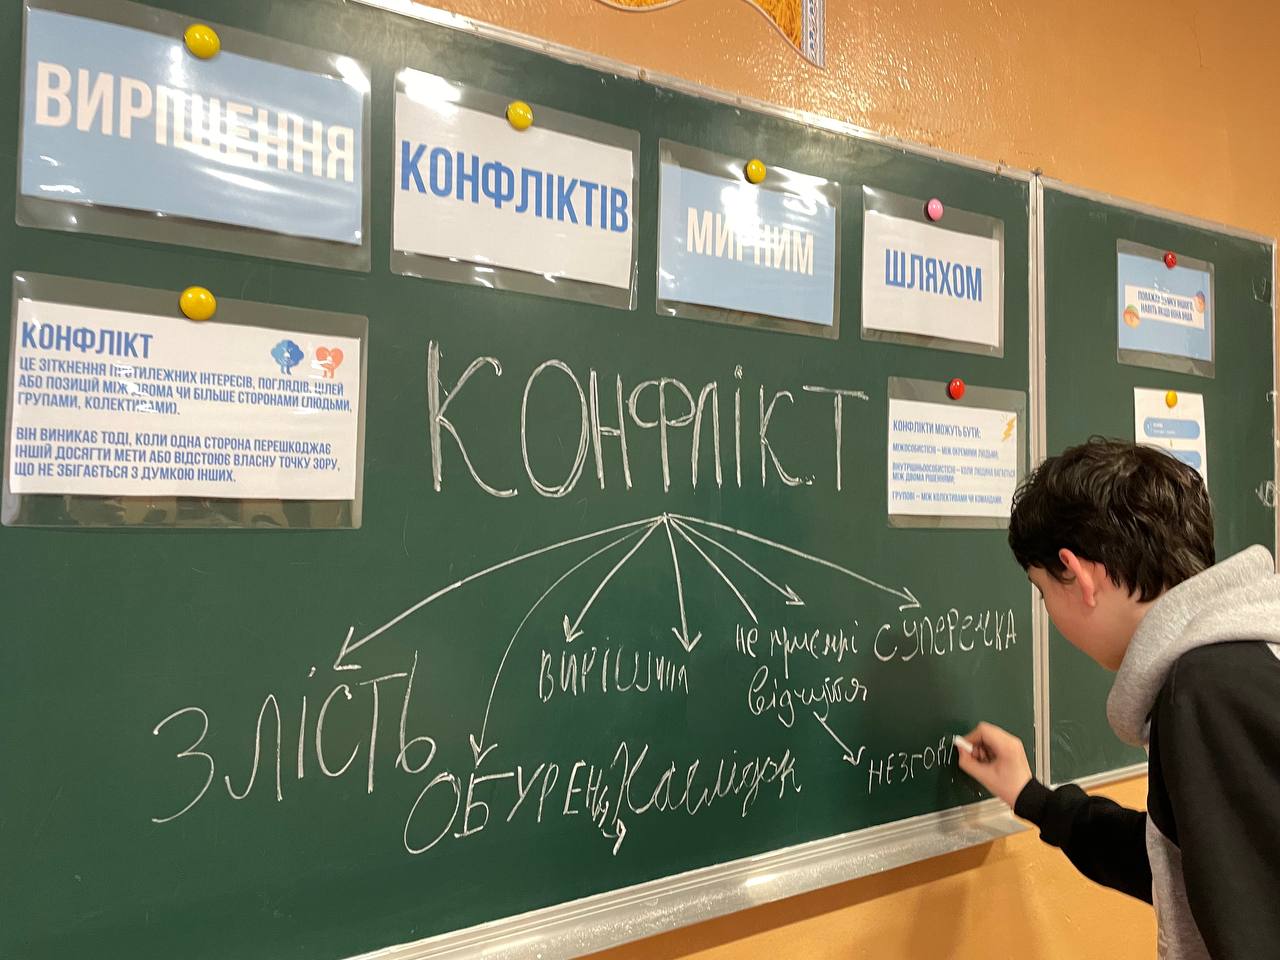 ВИРІШЕННЯ
КОНФЛІКТІВ
МИРНИМ
ШЛЯХОМ
КОНФЛІКТ
ЦЕ ЗІТКНЕННЯ ПРОТИЛЕЖНИХ ІНТЕРЕСІВ, ПОГЛЯДІВ, ЦІЛЕЙ
АБО ПОЗИЦІЙ МІЖ ДВОМА ЧИ БІЛЬШЕ СТОРОНАМИ (ЛЮДЬМИ,
ГРУПАМИ, КОЛЕКТИВАМИ).
ВІН ВИНИКАЄ ТОДІ, КОЛИ ОДНА СТОРОНА ПЕРЕШКОДЖАЄ
ІНШІЙ ДОСЯГТИ МЕТИ АБО ВІДСТОЮЄ ВЛАСНУ ТОЧКУ ЗОРУ,
ЩО НЕ ЗБІГАЄТЬСЯ З ДУМКОЮ ІНШИХ.
КОНФЛІКТ
КОНФЛІКТИ МОЖУТЬ БУТИ:
МІЖОСОБИСТІСНІ – МІЖ ОКРЕМИМИ ЛЮДЬМИ;
ВНУТРІШНЬООСОБИСТІСНІ – КОЛИ ЛЮДИНА ВАГАЄТЬСЯ
МІЖ ДВОМА РІШЕННЯМИ;
ГРУПОВІ – МІЖ КОЛЕКТИВАМИ ЧИ КОМАНДАМИ.
ПОВАЖАЙ ДУМКУ ІНШОГО,
НАВІТЬ ЯКЩО ВОНА ІНША
ЗЛІСТЬ
ОБУРЕН
наслідок
не приємні
відчуття
СУПЕРЕЧКА
НЕЗГОДА